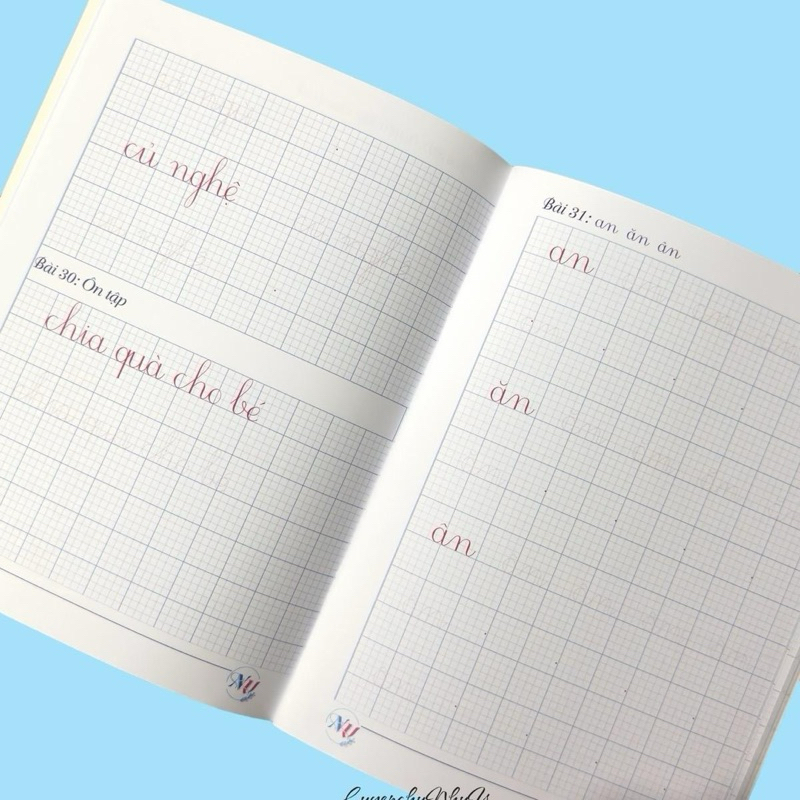 củ nghệ
Bài 30: Ôn tập
chia quà cho bé
NY
Bài 31: an ăn ân
an
ăn
ân
NY